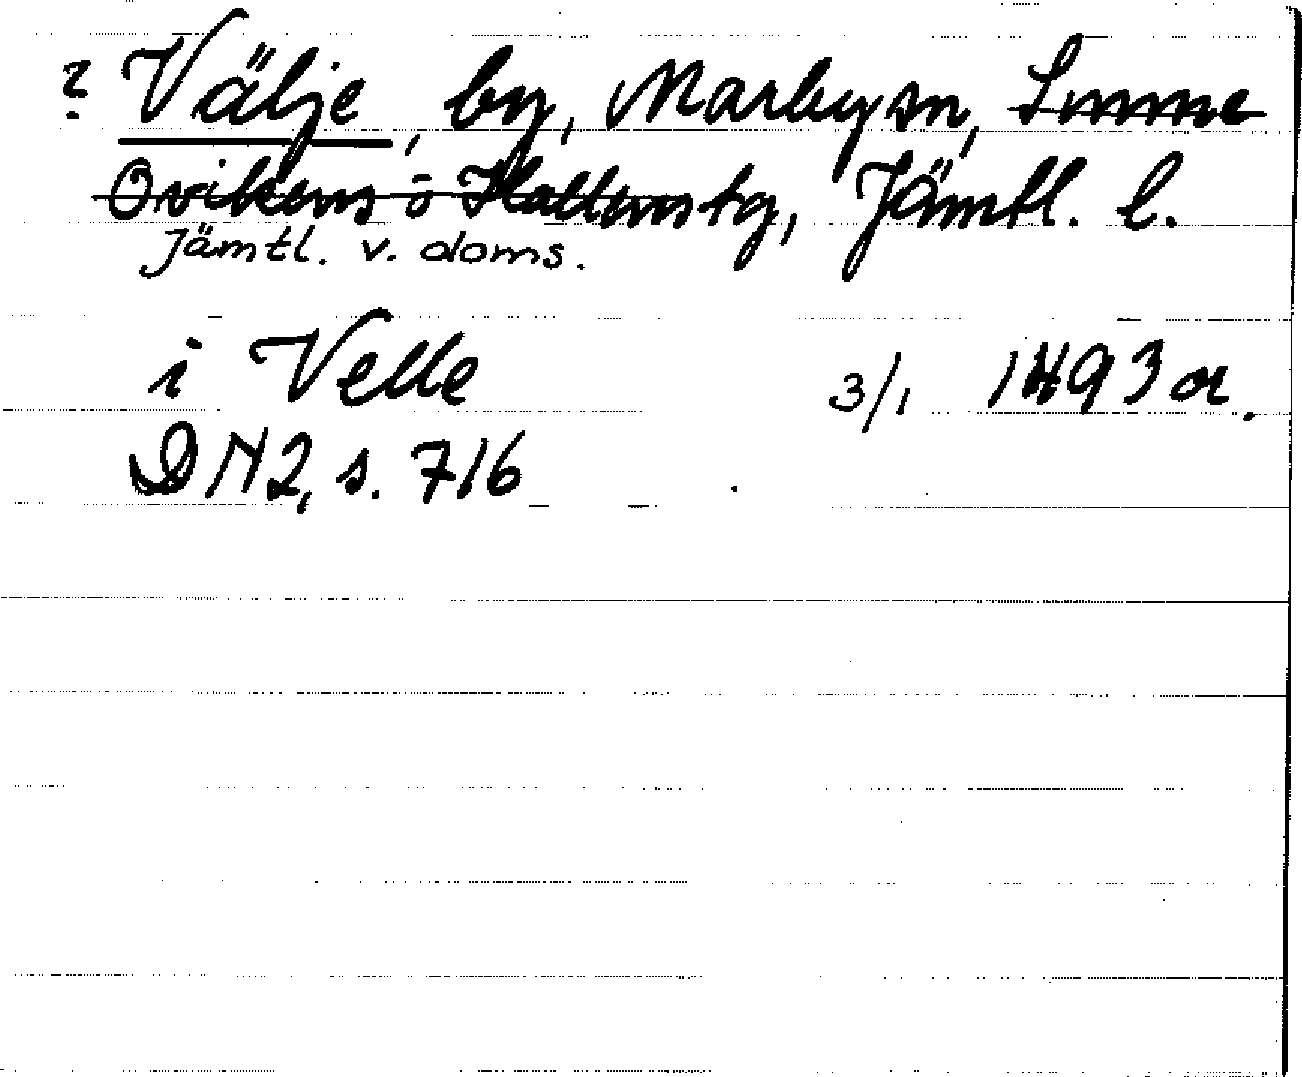 ? Välje, by, Marby sn, Sunne
Ovikens o Hallens tg, Jämtl. l.
Jämtl. v. doms.
i Velle 3/1 1493 or.
DN 2, s. 716